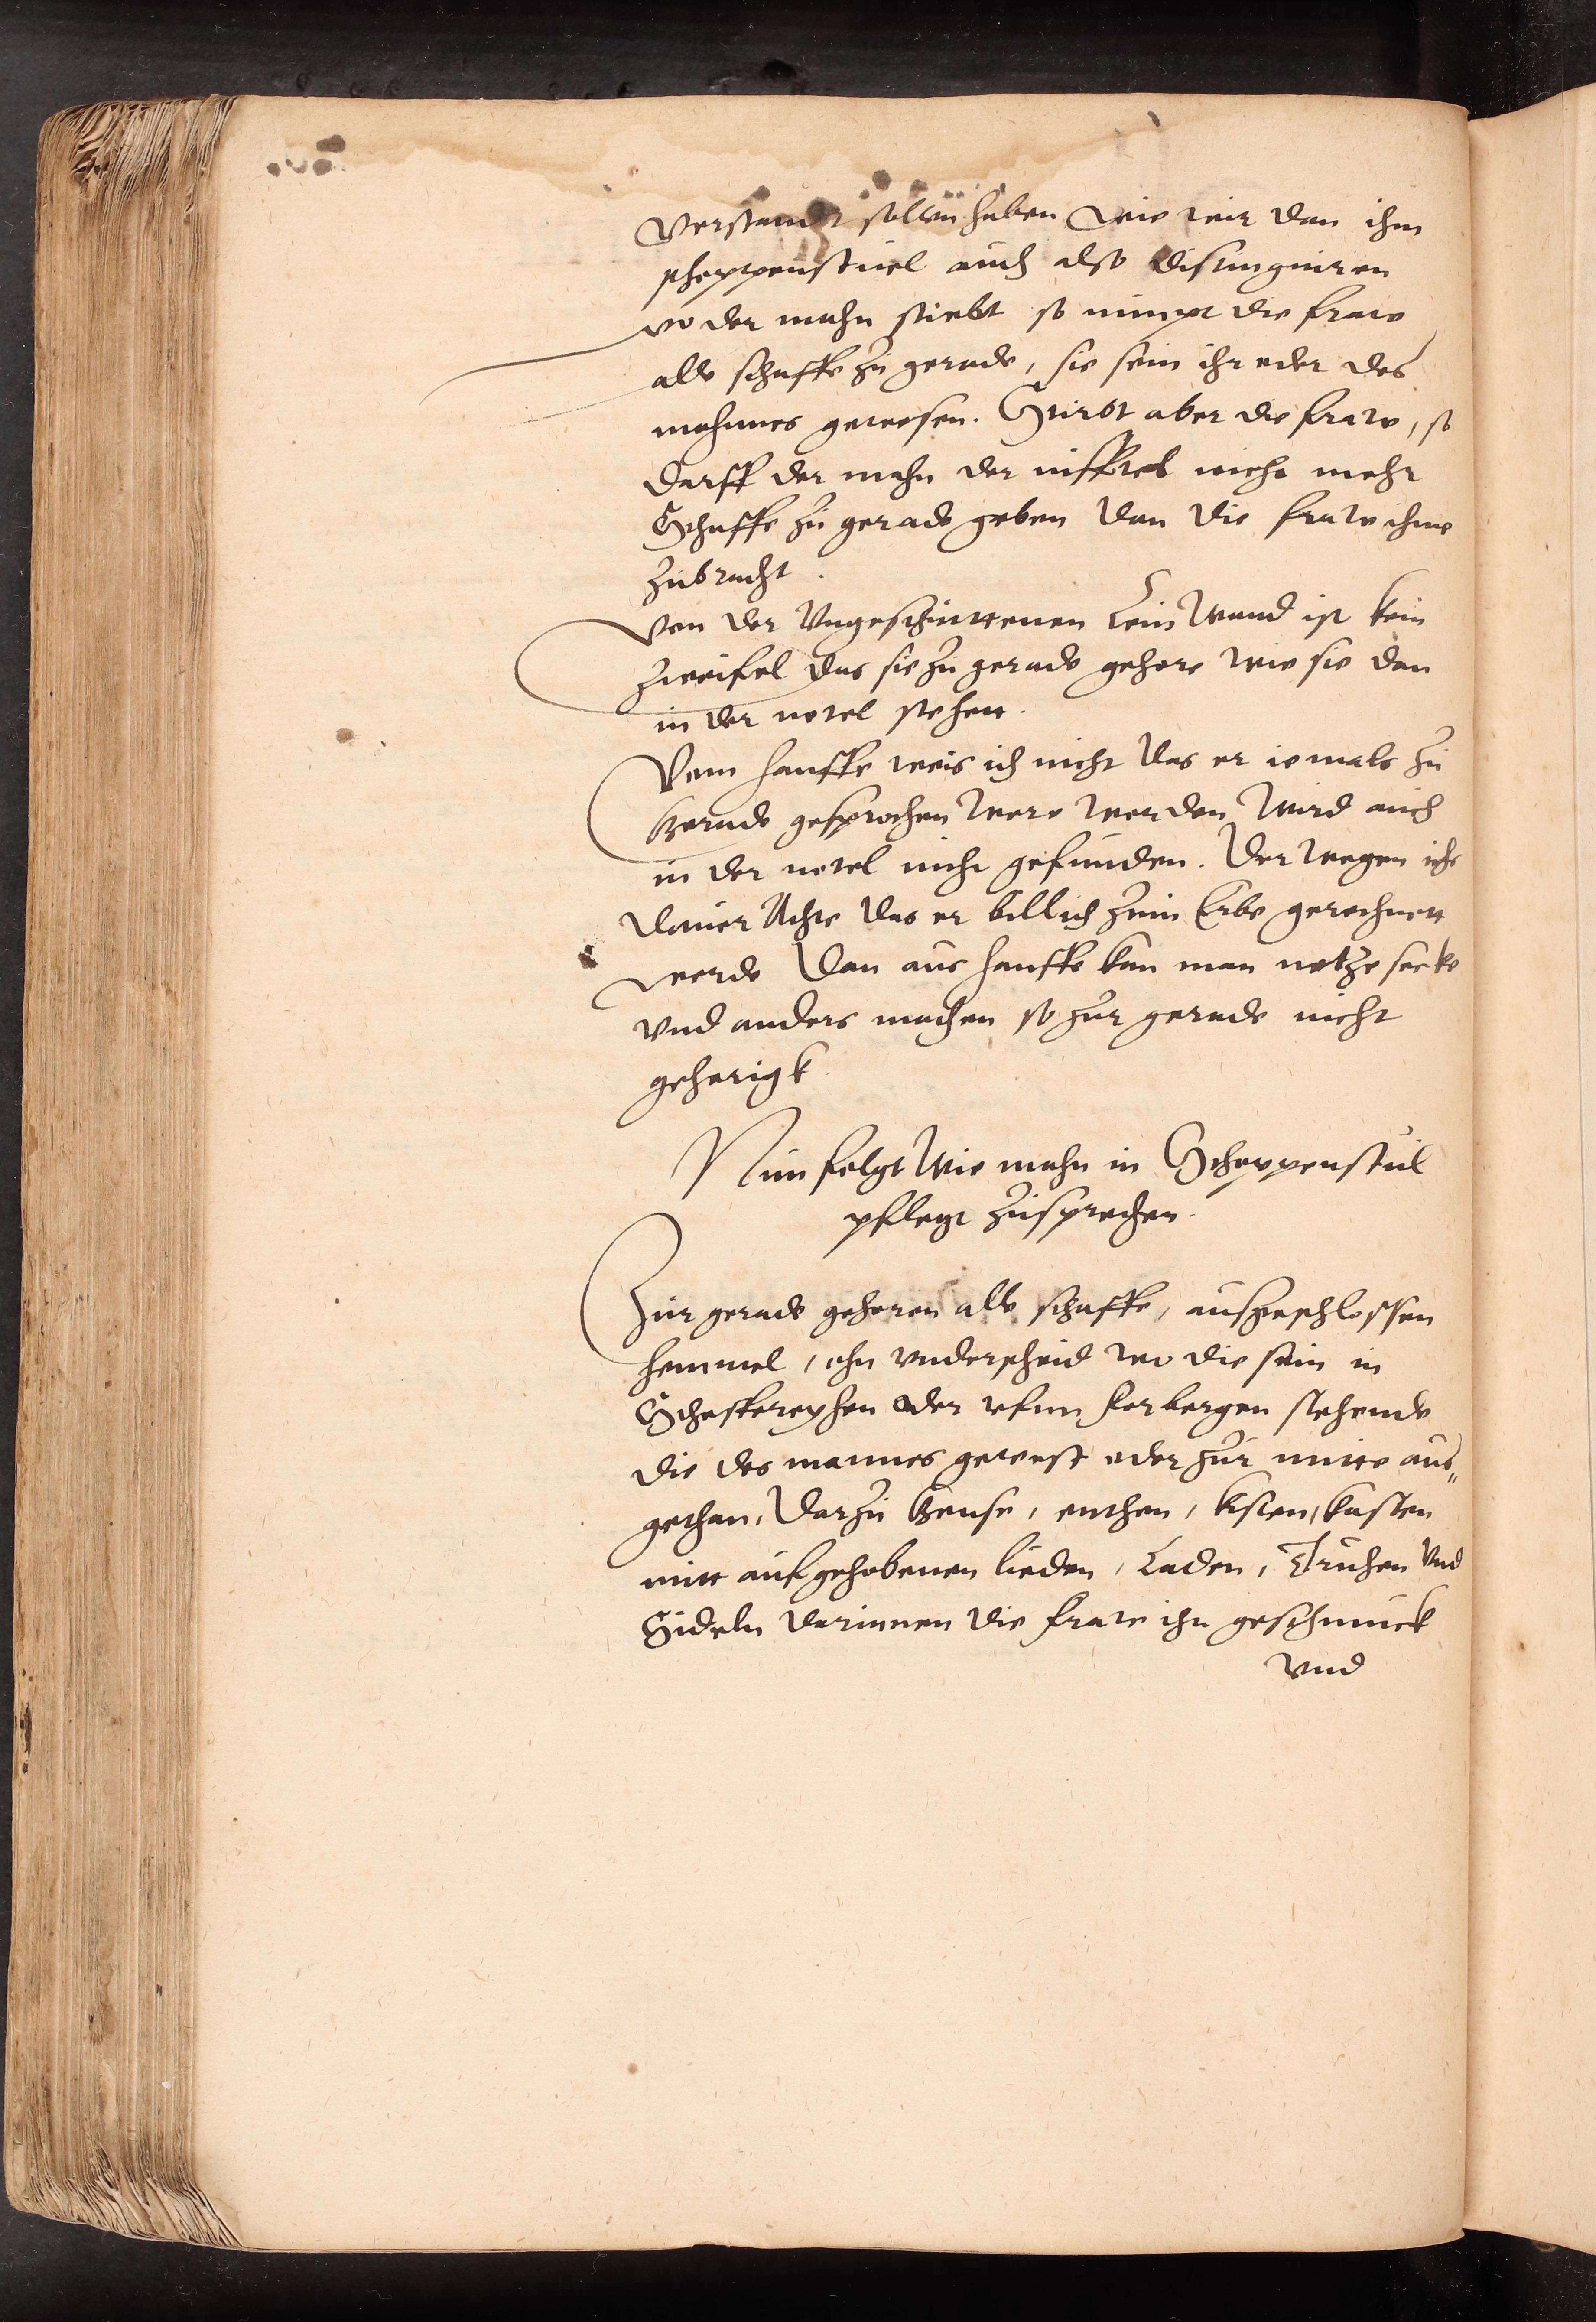 Verstandt sollen haben wie wir dan ihm
scheppenstuel auch also distinguiren
wo der mahn stirbt so nimpt die frawe
alle schaffe zu gerade, sie sein ihr oder des
mahnnes gewesen. Stirbt aber die frawe, so
darff der mahn der nifftel nicht mehr
Schaffe zu gerade geben dan die frawe ihme
zubracht.
Von der Ungeschnittenen Leinwand ist kein
zweifel das sie zu gerade gehore wie sie dan
in der notel stehett.
Vom hanffe weis ich nicht das er iemals zu
Gerade gesprochen were worden, Wird auch
in der notel nicht gefunden. Derwegen ich
davor Achte das er billich zum Erbe gerechnett
werde Dan aus hanffe kan man netze secke
vnd anders machen so zur gerade nicht
gehorigk
Nun folgt Wie mahn in Scheppenstul
pflegt zusprechen.
Zur gerade gehoren alle schaffe, ausgeschlossen
hemmel, ohn vnderscheid wo die sein in
Scheffereyhen oder vfnn forbergen stehende
die des mannes gewest oder zur mitte aus„
gethan, Darzu Gense, enthen, kisten, kasten
mitt aufgehobenen lieden, Laden, Truhen Und
Sideln darinnen die frawe ihr geschmuck
vnd